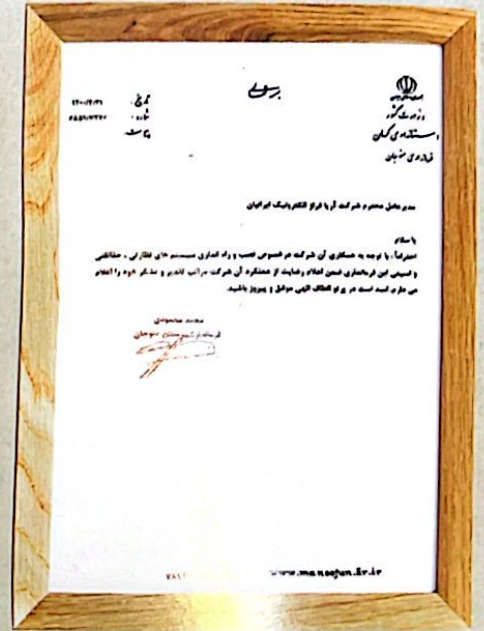 وزارت کشور
استانداری کرمان
فرمانداری منوجان
تاریخ :
شماره :
پیوست
مدیرعامل محترم شرکت آریا فراز الکترونیک ایرانیان
با سلام
احتراماً ، با توجه به همکاری آن شرکت در خصوص نصب و راه اندازی سیستم های نظارتی ، حفاظتی
و امنیتی این فرمانداری ضمن اعلام رضایت از عملکرد آن شرکت مراتب تقدیر و تشکر خود را اعلام
می دارم امید است در پرتو الطاف الهی موفق و پیروز باشید.
محمد محمودی
فرماندار شهرستان منوجان
www.manoojan.kr.ir